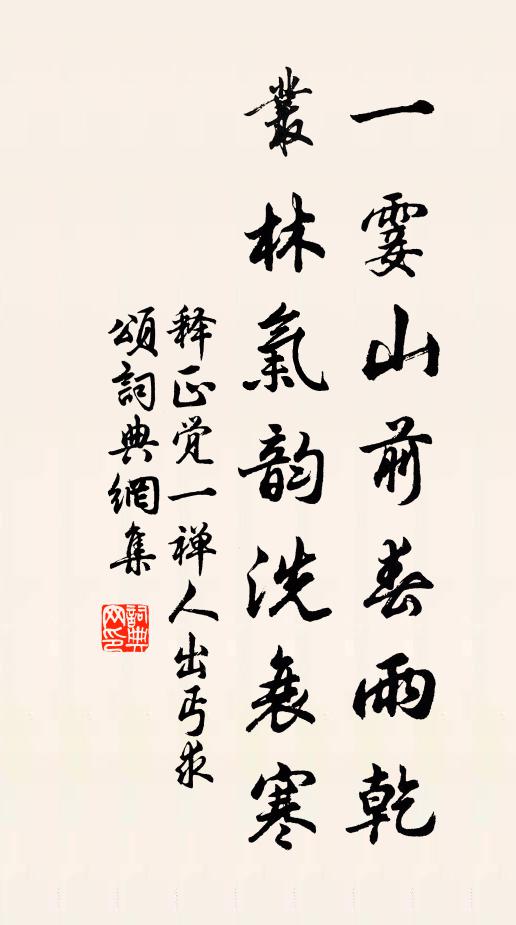 一霎山前春雨乾
叢林氣韵洗衰寒
释正觉一禅人出丐求
頌詞典網集
詞典网印